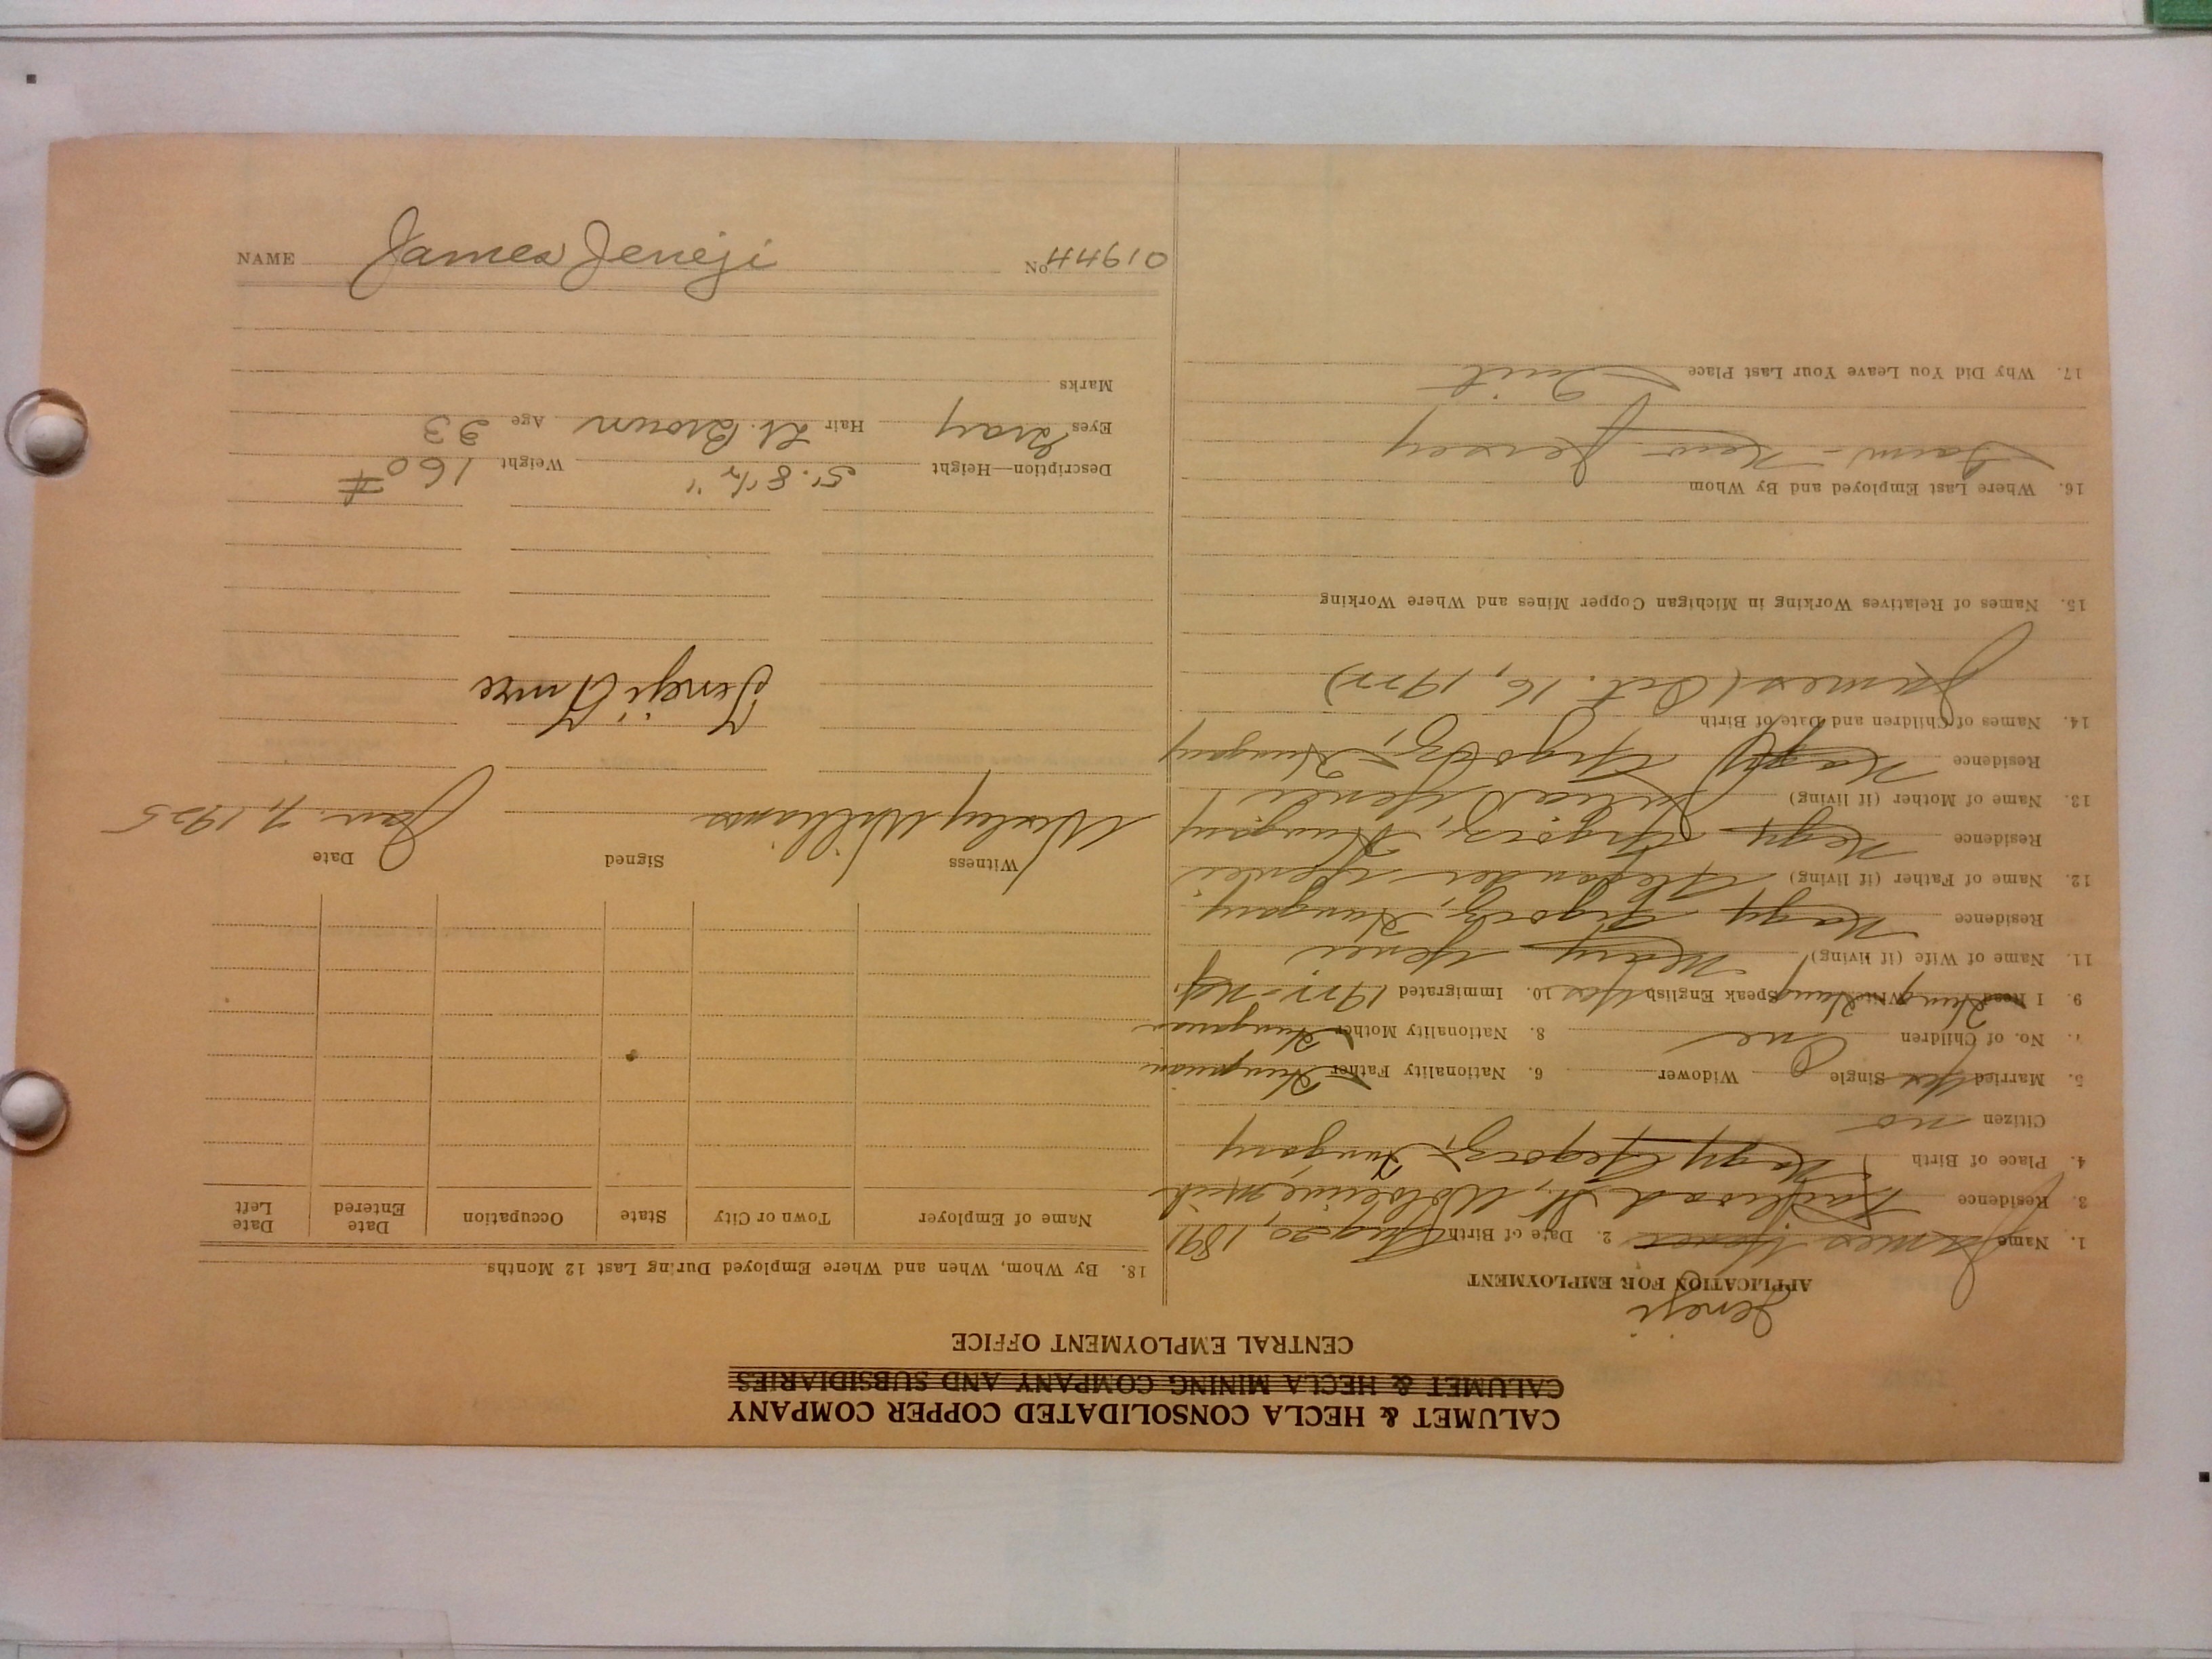 CALUMET & HECLA CONSOLIDATED COPPER COMPANY
CALUMET & HECLA MINING COMPANY AND SUBSIDIARIES
CENTRAL EMPLOYMENT OFFICE
APPLICATION FOR EMPLOYMENT
Jeneji
1. Name James Yenei 2. Date of Birth Aug 20, 1891
3. Residence Railroad St, Wolverine, Mich
4. Place of Birth Nagy Hungary
Citizen no
5. Married Yes Single Widower 6. Nationality Father Hungarian
7. No. of Children One 8. Nationality Mother Hungarian
9. I Read Hung Write Hung Speak English Yes 10. Immigrated 1922-
11. Name of Wife (if living) Mary Yenei
Residence Nagy Hungary
12. Name of Father (if living) Alexander Yenei
Residence Nagy Hungary
13. Name of Mother (if living) Julia Yenei
Residence Nagy Hungary
14. Names of Children and Date of Birth
James (Oct. 16, 1922)
15. Names of Relatives Working in Michigan Copper Mines and Where Working
16. Where Last Employed and By Whom
Farm - New Jersey
17. Why Did You Leave Your Last Place Quit
18. By Whom, When and Where Employed During Last 12 Months
Name of Employer Town or City State Occupation Date Entered Date Left
Witness Signed Date
Wesley Williams Jan. 7, 1925
Jeneji Imre
Description—Height 5'. 8 1/2" Weight 160 #
Eyes Gray Hair Lt. Brown Age 33
Marks
NAME James Jeneji No. 01944